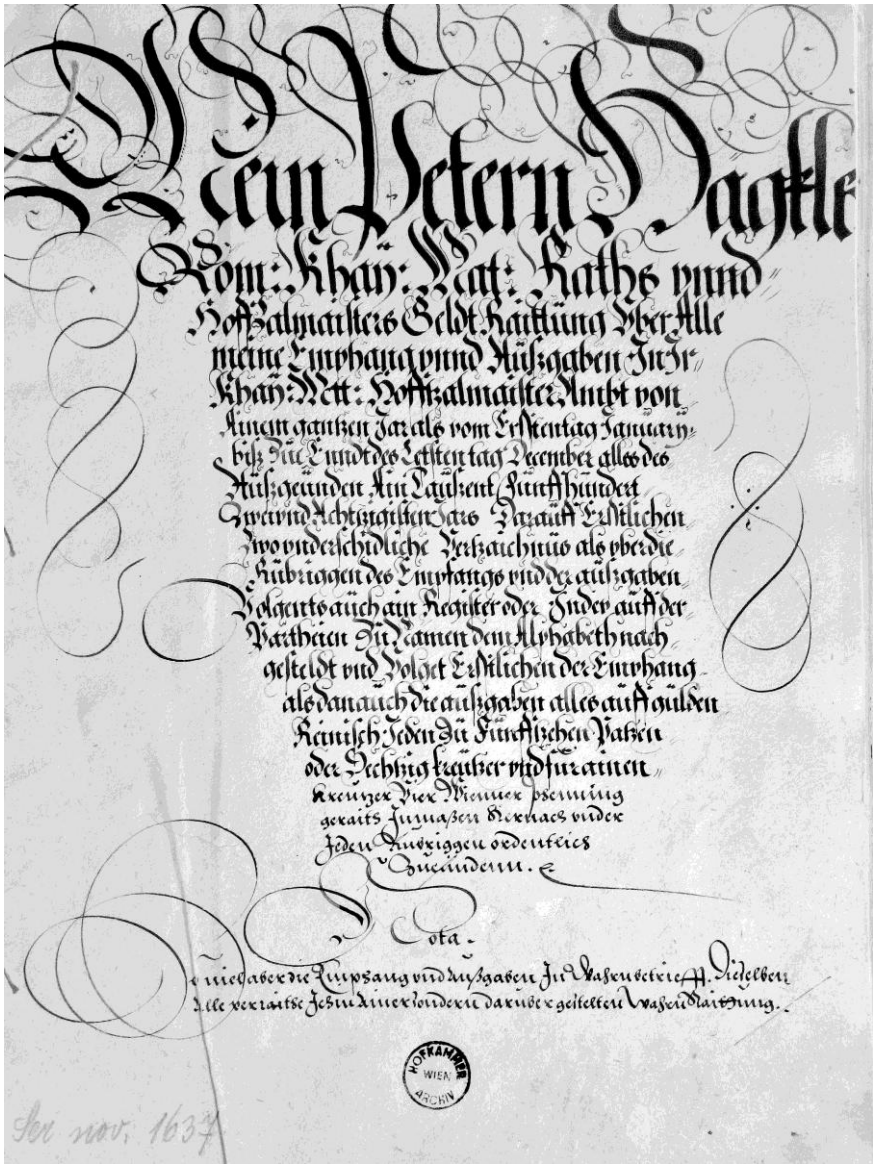 Mein Petern Hagkle
Röm: Khaÿ: Mat: Raths vnnd
Hoffzalmaisters Geldt Raittung Vber Alle
meine Emphang vnnd Außgaben In Ir
Khaÿ: Mtt: Hoffzalmaister Ambt von
Ainem gantzen Jar als vom Ersten tag January
biß Zu Enndt des Letsten tag December alles des
Außgeünden Ain Taußent Fünffhundert
Zwei vnd Achtzigisten Jars Darauff Erstlichen
Zwo vnderschidliche Verzaichnus als vber die
Rubriggen des Empfangs vnd der außgaben
Volgents auch ain Register oder Index auff der
Partheien Zu Namen dem Alphabeth nach
gesteldt vnd Volget Erstlichen der Emphang
als dan auch die außgaben alles auff gulden
Reinisch Jeden Zu Fünffzehen Patzen
oder Sechtzig kreutzer vnd für ainen
Kreutzer Vier Wienner phenning
geraits Inmaßen Hernach vnder
Jeden Rubriggen ordentlich
Zuefinden.
Nota
souiel aber die Emphang vnd Außgaben In Wahrn betrifft. Dieselben
Alle verraitte Ich In ainer sondern daruber gestelten Wahrn Raittung.
HOFKAMMER
WIEN
ARCHIV
Ser nov. 1637